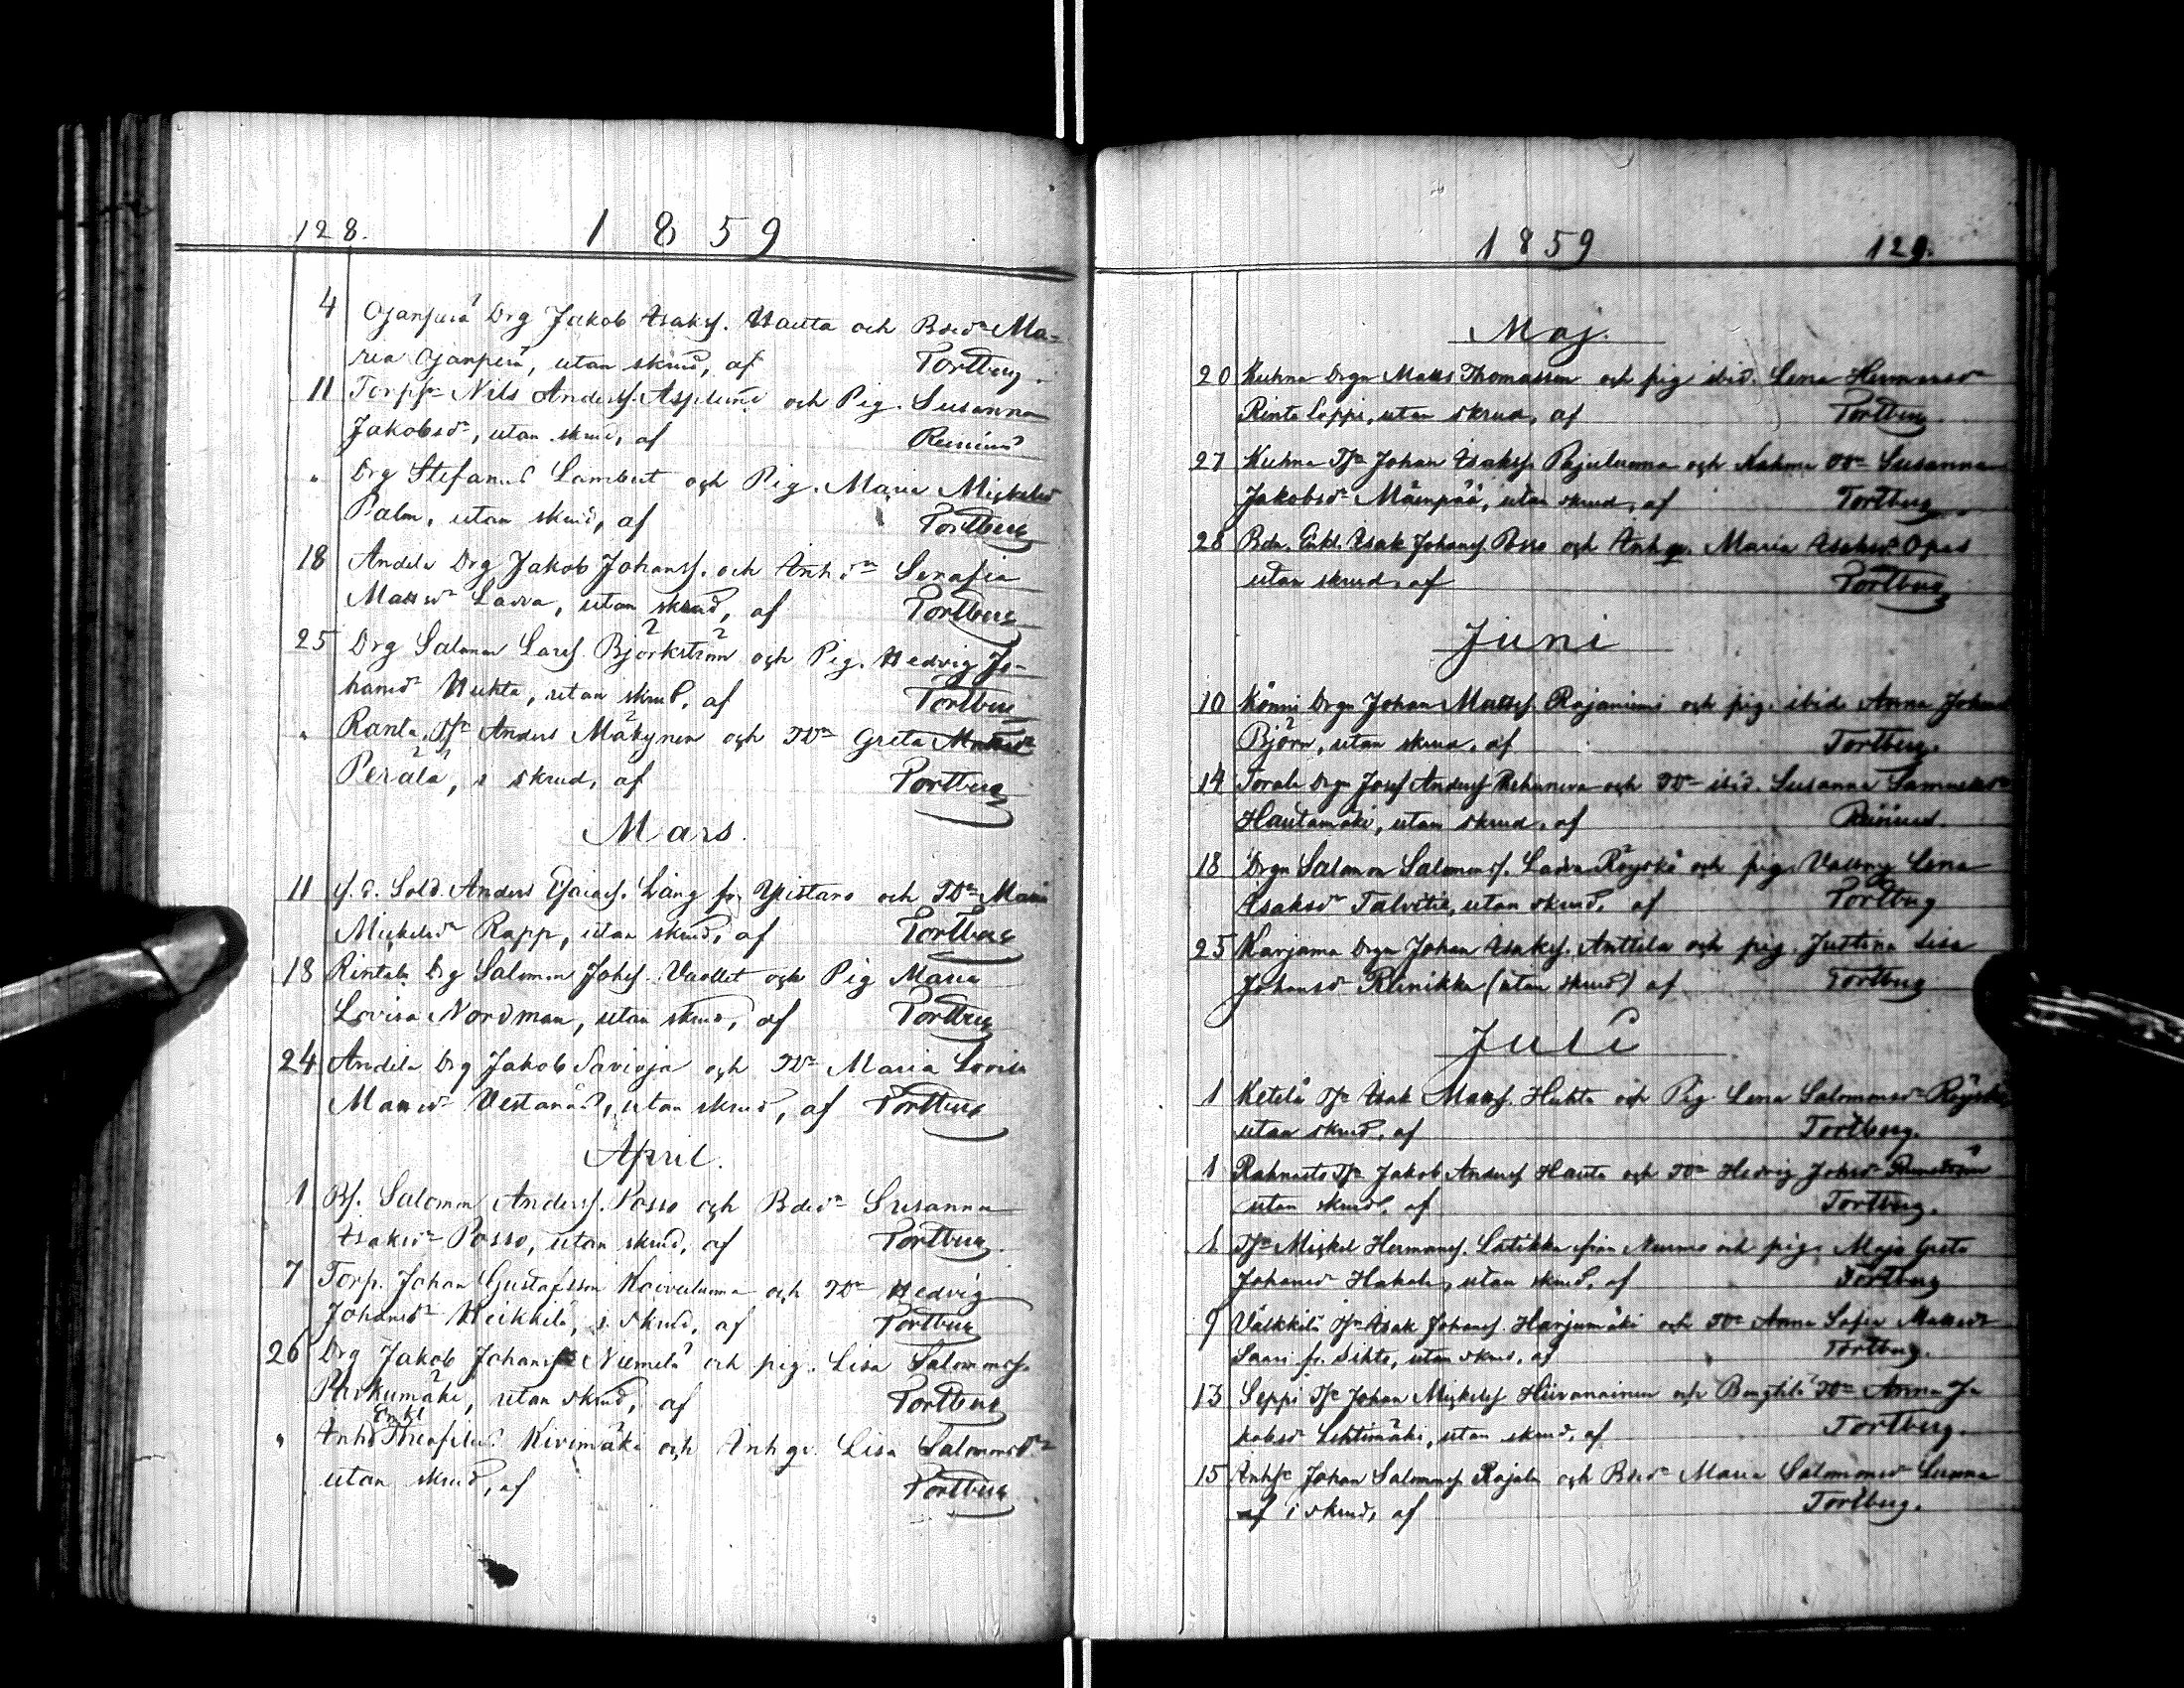 128. 1859
4 Ojanperä Drg Jakob Isakss. Hauta och Bdr Ma=
ria Ojanperä, utan skrud, af Tortberg.
11 Torpss Nils Anderss. Asplund och Pig. Susanna
Jakobsdr, utan skrud, af
" Drg Stefanus Lambert och Pig. Maria Mickelsd
Palm, utan skrud, af Tortberg
18 Andela Drg Jakob Johanss. och Inhdr Serafia
Mattsdr Lavra, utan skrud, af Tortberg
25 Drg Salomon Larss. Björkström och Pig. Hedvig Jo-
hansdr Huhta, utan skrud, af Tortberg
" Ranta, Tss Anders Mäkynen och TDr Greta
Perälä, i skrud, af Tortberg
Mars.
11 f. d. Sold. Anders Esaiass. Lång fr. Ylistaro och TDr Maria
Mickelsdr Rapp, utan skrud, af Tortberg
18 Rintala Drg Salomon Johss. och Pig Maria
Lovisa Nordman, utan skrud, af Tortberg
24 Andela Drg Jakob Savioja och TDr Maria Lovisa
Mattsdr, utan skrud, af Tortberg
April.
1 Bs. Salomon Anderss. Posso och Bdr Susanna
Isaksdr Posso, utan skrud, af Tortberg.
7 Torp. Johan Gustafsson Koivuluoma och TDr Hedvig
Johansdr Heikkilä, i skrud, af Tortberg
26 Drg Jakob Johanss Niemelä och pig. Lisa Salomons.
utan skrud, af Tortberg
Enkl
" Inhs Theofilus Kivimäki och Inhgr. Lisa Salomonsdr
utan skrud, af Tortberg
1859 129.
Maj.
20 Kuhna Drgn Matts Thomasson och pig ibid. Lena Hermansdr
Rinta loppi, utan skrud, af Tortberg.
27 Kuhna Tss Johan Isakss. Pajuluoma och Susanna
Jakobsdr Mäenpää, utan skrud, af Tortberg
28 Bdr. Enkl. Isak Johanss. Posso och Inhgr. Maria Isaksdr Opas
utan skrud, af Tortberg
Juni
10 Könni Drgn Johan Mattss. Rajaniemi och pig. ibid. Anna
Björn, utan skrud, af Tortberg.
14 Torala Drgn Josef Anderss och TDr ibid. Susanna
Hautamäki, utan skrud, af
18 Drgn Salomon Salomonss. Röyskö och pig. Lena
Isaksdr Talvitie, utan skrud, af Tortberg
25 Karjama Drgn Johan Isakss. Anttila och pig. Justina Lisa
Johansdr Rinikka (utan skrud) af Tortberg
Juli
1 Ketelä Tss Isak Mattss. Huhta och Pig. Lena Salomonsdr Röyskö
utan skrud, af Tortberg.
1 Rahnasto Tss Jakob Anderss Hauta och TDr Hedvig Johsdr
utan skrud, af Tortberg.
1 Tss Mickel Hermanss. Latikka från Nurmo och pig. Maja Greta
Johansdr Hakola, utan skrud, af Tortberg
9 Välkkilä Tss Isak Johanss. Harjumäki och TDr Anna Sofia Mattsdr
Saari fr. utan skrud, af Tortberg.
13 Seppi Tss Johan Mickelss och TDr Anna Ja
kobsdr Lehtimäki, utan skrud, af Tortberg.
15 Inhss Johan Salomonss Rajala och Bdr Maria Salomonsdr Luoma
af i skrud, af Tortberg.